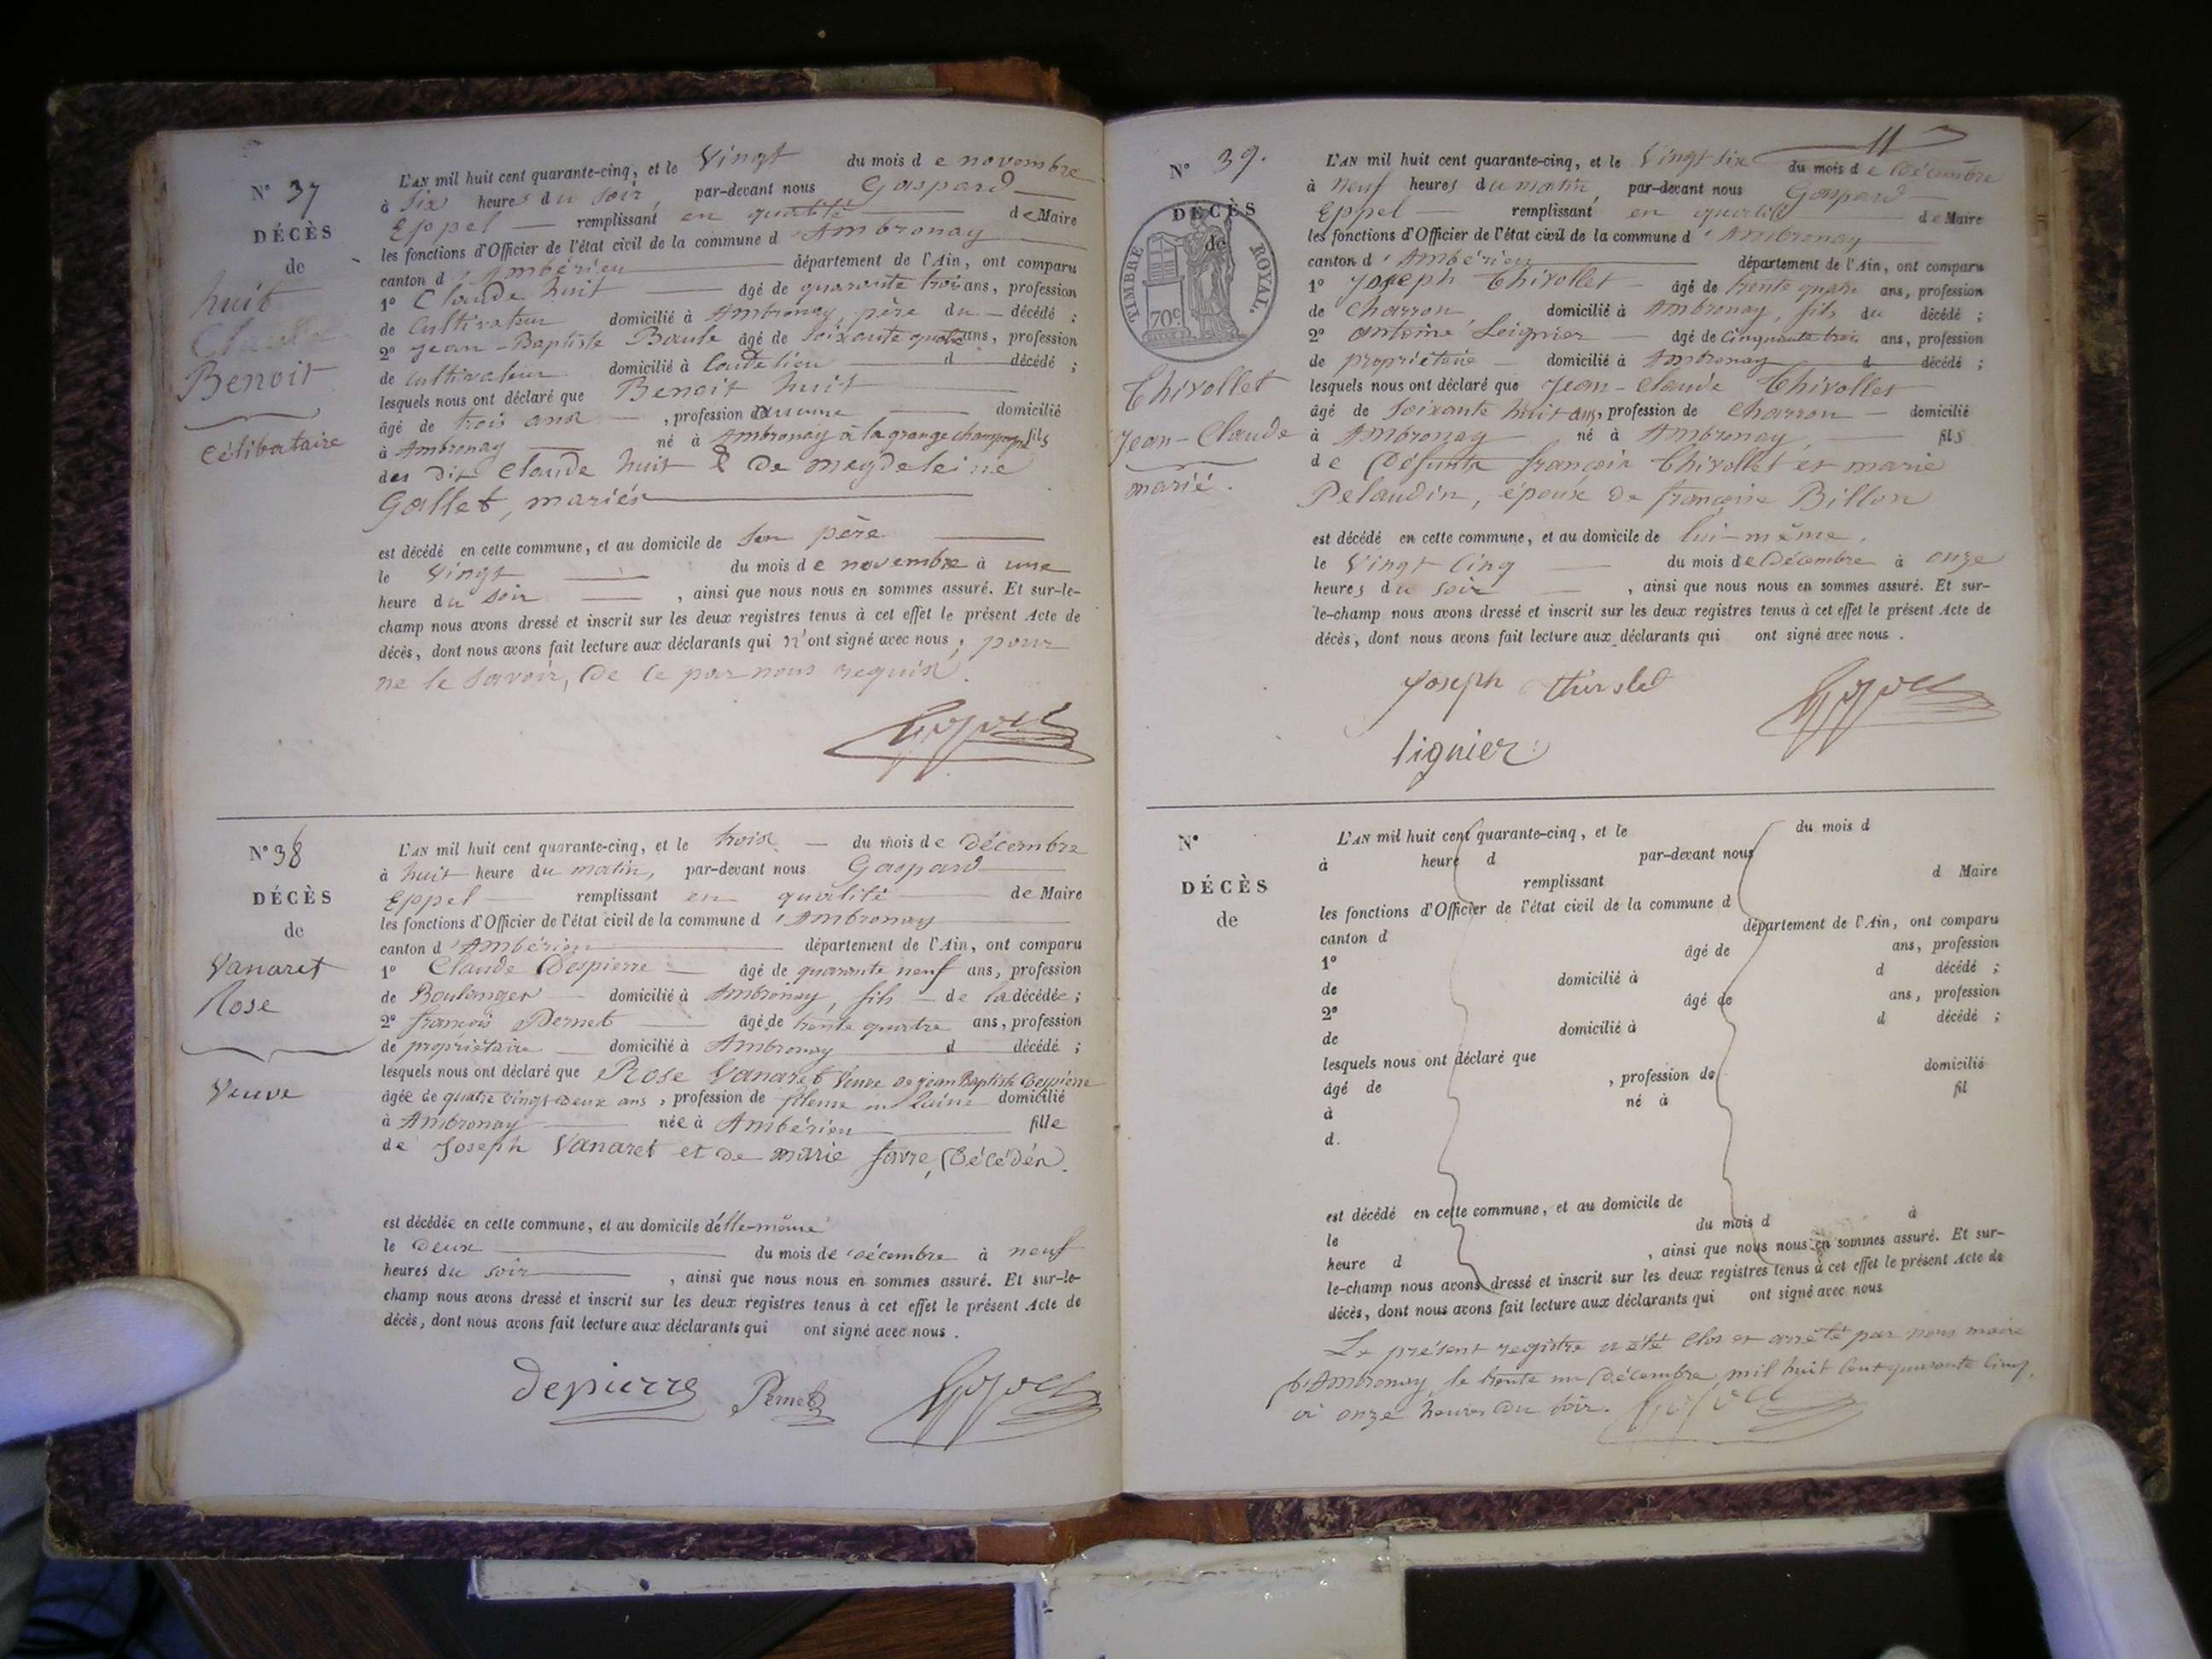 N° 37
DÉCÈS
de
huit
Claude
Benoit
Célibataire
L'AN mil huit cent quarante-cinq, et le Vingt du mois d e novembre
à Six heures du soir, par-devant nous Gaspard
Eppel remplissant en qualité de Maire
les fonctions d'Officier de l'état civil de la commune d'Ambronay
canton d'Ambérieu département de l'Ain, ont comparu
1° Claude huit âgé de quarante trois ans, profession
de Cultivateur domicilié à Ambronay, père du décédé ;
2° Jean-Baptiste âgé de soixante ans, profession
de cultivateur domicilié à d décédé ;
lesquels nous ont déclaré que Benoit huit
âgé de trois ans , profession domicilié
à Ambronay né à Ambronay à la grange fils
des dit Claude huit & de Magdeleine
Gallet, mariés
est décédé en cette commune, et au domicile de son père
le Vingt du mois de novembre à une
heure du soir , ainsi que nous nous en sommes assuré. Et sur-le-
champ nous avons dressé et inscrit sur les deux registres tenus à cet effet le présent Acte de
décès, dont nous avons fait lecture aux déclarants qui n'ont signé avec nous ; pour
ne le savoir, de ce par nous requis.
N° 38
DÉCÈS
de
Vanaret
Rose
Veuve
L'AN mil huit cent quarante-cinq, et le trois du mois de Décembre
à huit heure du matin, par-devant nous Gaspard
Eppel remplissant en qualité de Maire
les fonctions d'Officier de l'état civil de la commune d'Ambronay
canton d'Ambérieu département de l'Ain, ont comparu
1° Claude Despierre âgé de quarante neuf ans, profession
de Boulanger domicilié à Ambronay, fils de la décédée ;
2° françois Pernet âgé de trente quatre ans, profession
de propriétaire domicilié à Ambronay d décédé ;
lesquels nous ont déclaré que Rose Vanaret Veuve de jean Baptiste Despierre
âgée de quatre vingt deux ans , profession de fileuse en laine domicilié
à Ambronay née à Ambérieu fille
de Joseph Vanaret et de marie favre, Décédés.
est décédée en cette commune, et au domicile d'elle-même
le deux du mois de décembre à neuf
heures du soir , ainsi que nous nous en sommes assuré. Et sur-le-
champ nous avons dressé et inscrit sur les deux registres tenus à cet effet le présent Acte de
décès, dont nous avons fait lecture aux déclarants qui ont signé avec nous .
Depierre Pernet
11
N° 39.
DÉCÈS
de
TIMBRE ROYAL.
70c
Thivollet
Jean-Claude
marié.
L'AN mil huit cent quarante-cinq, et le Vingt six du mois de Décembre
à neuf heures du matin, par-devant nous Gaspard
Eppel remplissant en qualité de Maire
les fonctions d'Officier de l'état civil de la commune d'Ambronay
canton d'Ambérieu département de l'Ain, ont comparu
1° Joseph Thivollet âgé de trente quatre ans, profession
de Charron, domicilié à Ambronay, fils du décédé ;
2° Antoine Leignier âgé de Cinquante trois ans, profession
de propriétaire domicilié à Ambronay d décédé ;
lesquels nous ont déclaré que Jean-Claude Thivollet
âgé de Soixante huit ans, profession de Charron domicilié
à Ambronay né à Ambronay, fils
de Défunts françois Thivollet et marie
Pelaudin, époux de françoise Billon
est décédé en cette commune, et au domicile de lui-même,
le Vingt Cinq du mois de Décembre à onze
heures du soir , ainsi que nous nous en sommes assuré. Et sur-
le-champ nous avons dressé et inscrit sur les deux registres tenus à cet effet le présent Acte de
décès, dont nous avons fait lecture aux déclarants qui ont signé avec nous .
Joseph
lignier
N°
DÉCÈS
de
L'AN mil huit cent quarante-cinq, et le du mois d
à heure d par-devant nous
remplissant d Maire
les fonctions d'Officier de l'état civil de la commune d
canton d département de l'Ain, ont comparu
1° âgé de ans, profession
de domicilié à d décédé ;
2° âgé de ans, profession
de domicilié à d décédé ;
lesquels nous ont déclaré que
âgé de , profession de domicilié
à né à fil
d.
est décédé en cette commune, et au domicile de
le du mois d à
heure d , ainsi que nous nous en sommes assuré. Et sur-
le-champ nous avons dressé et inscrit sur les deux registres tenus à cet effet le présent Acte de
décès, dont nous avons fait lecture aux déclarants qui ont signé avec nous
Le présent registre a été Clos et arrêté par nous maire
d'Ambronay le trente un Décembre mil huit Cent quarante Cinq,
à onze heures du soir.